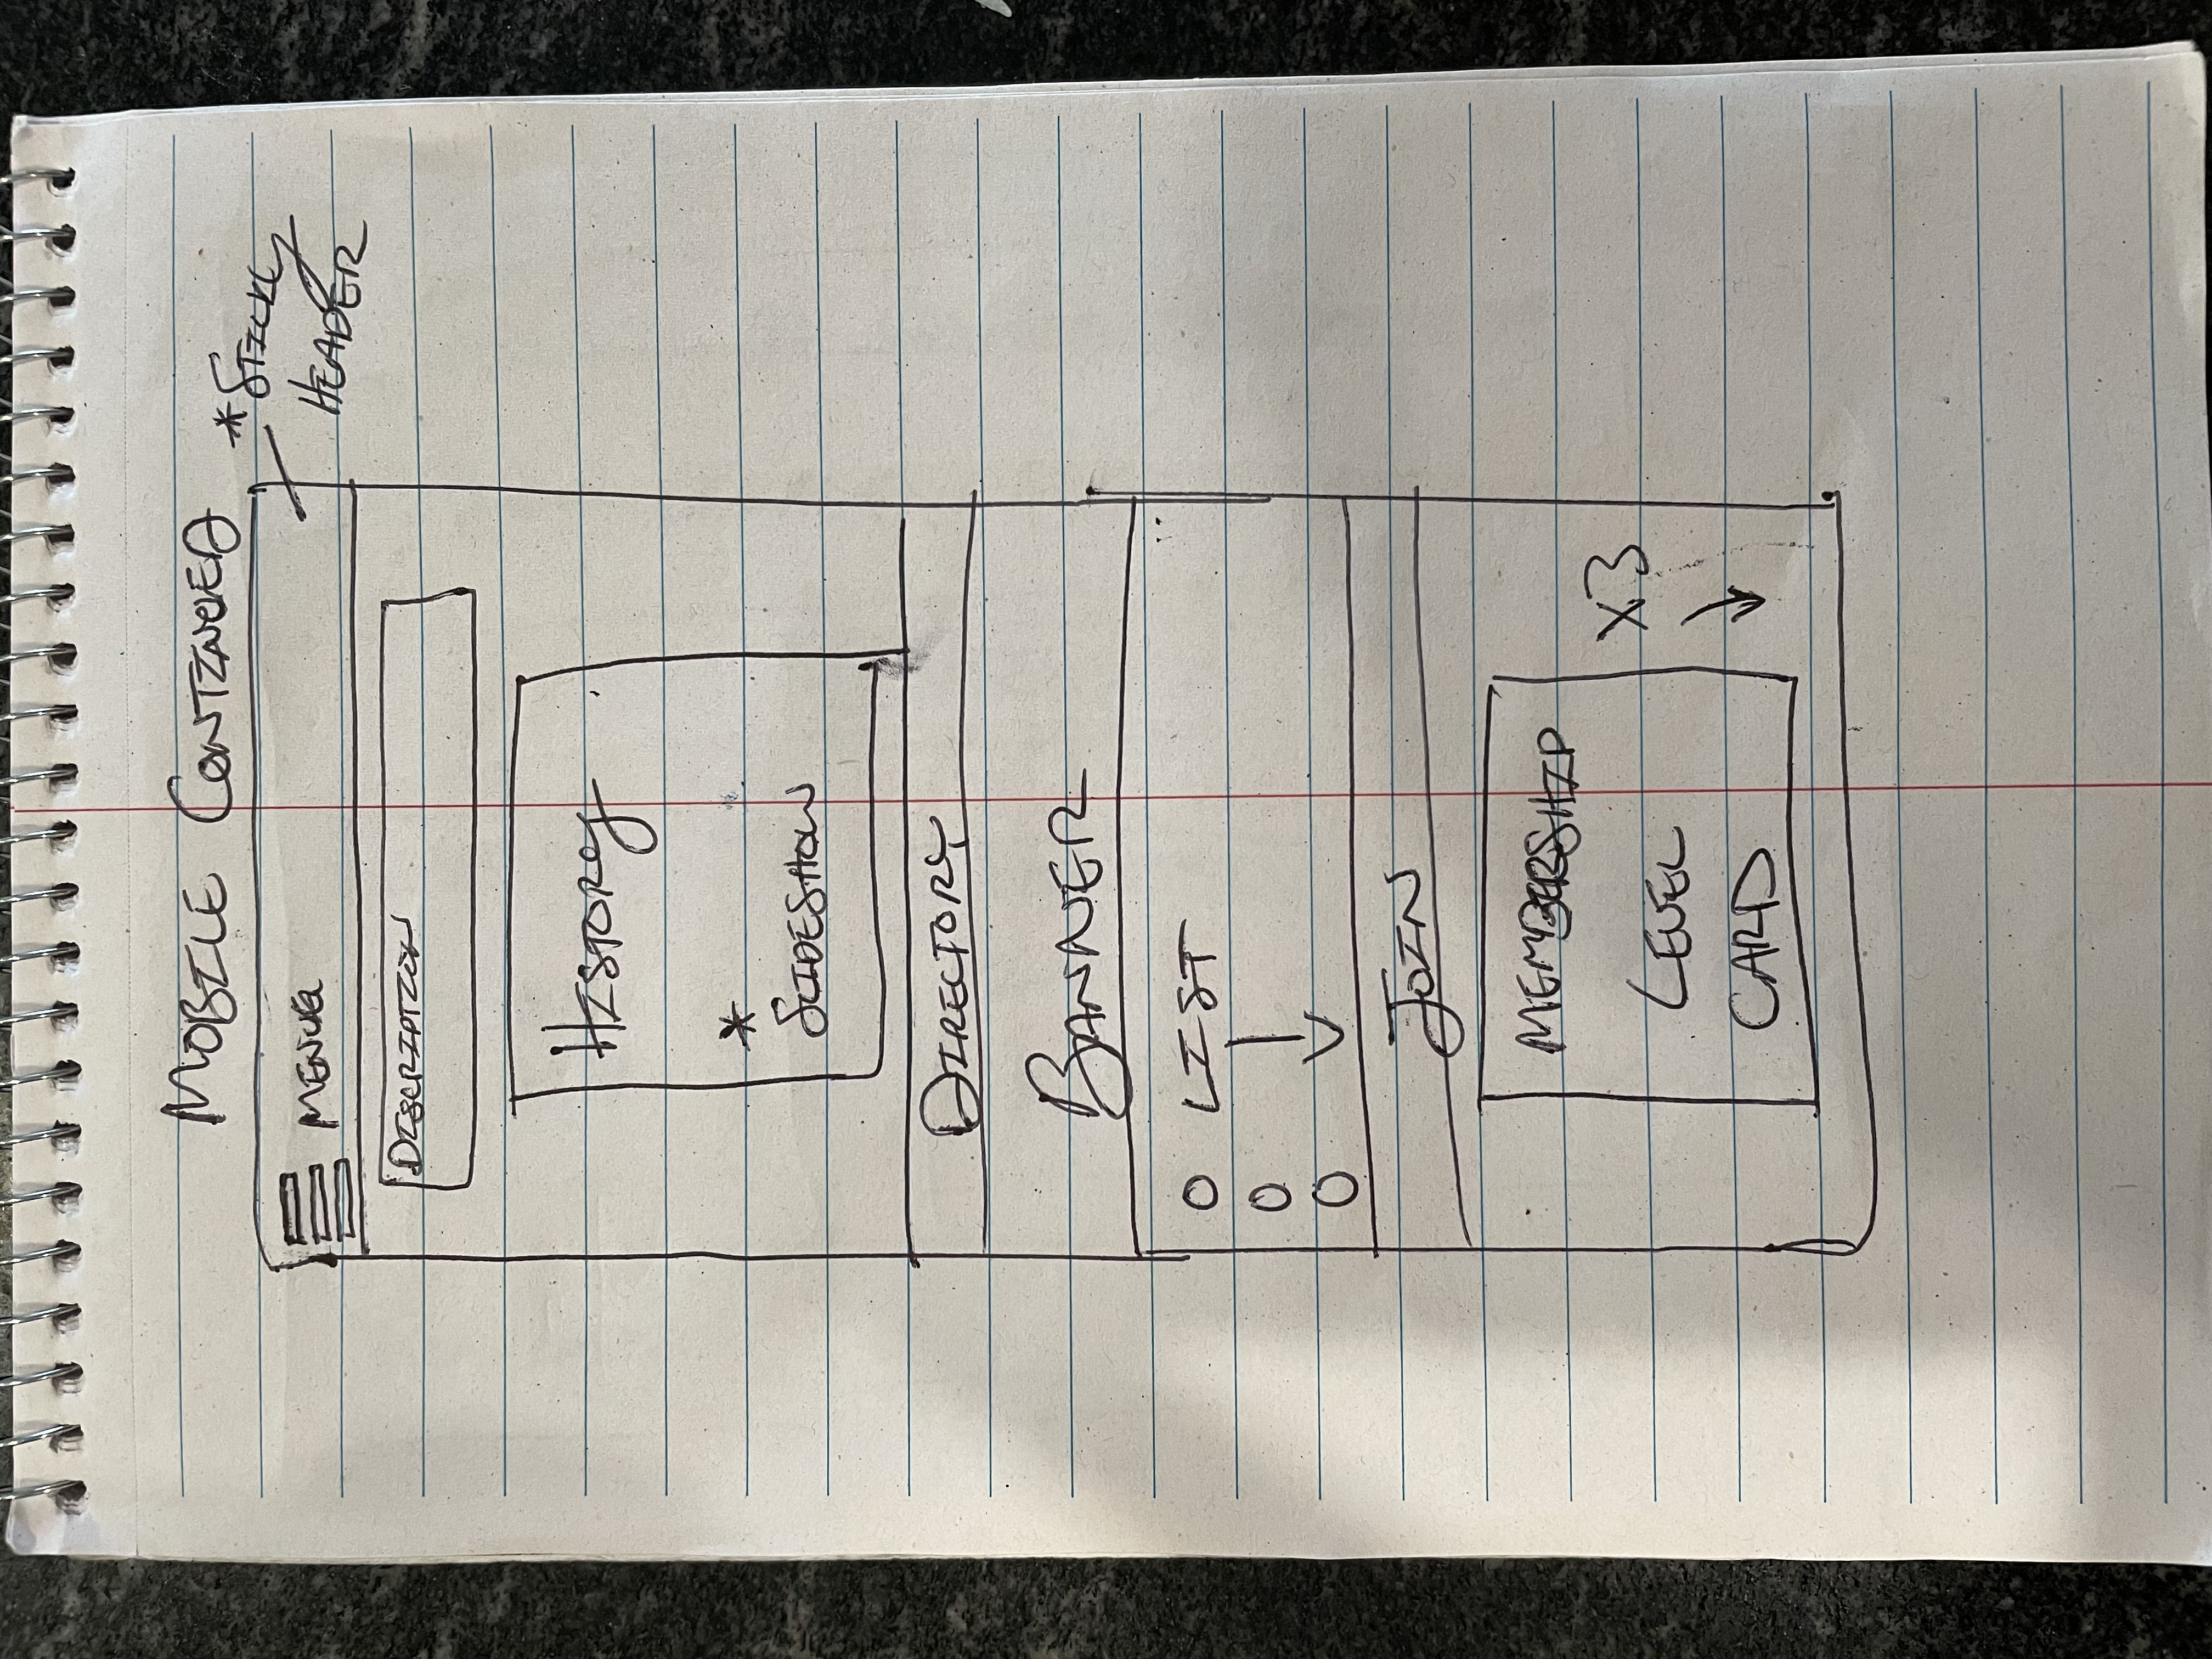 MOBILE CONTINUED
*STICKY
HEADER
MENUE
DISCRIPTION
HISTORY
*
SLIDESHOW
DIRECTORY
BANNER
O LIST
O
O
JOIN
MEMBERSHIP
LEVEL
CARD
X3